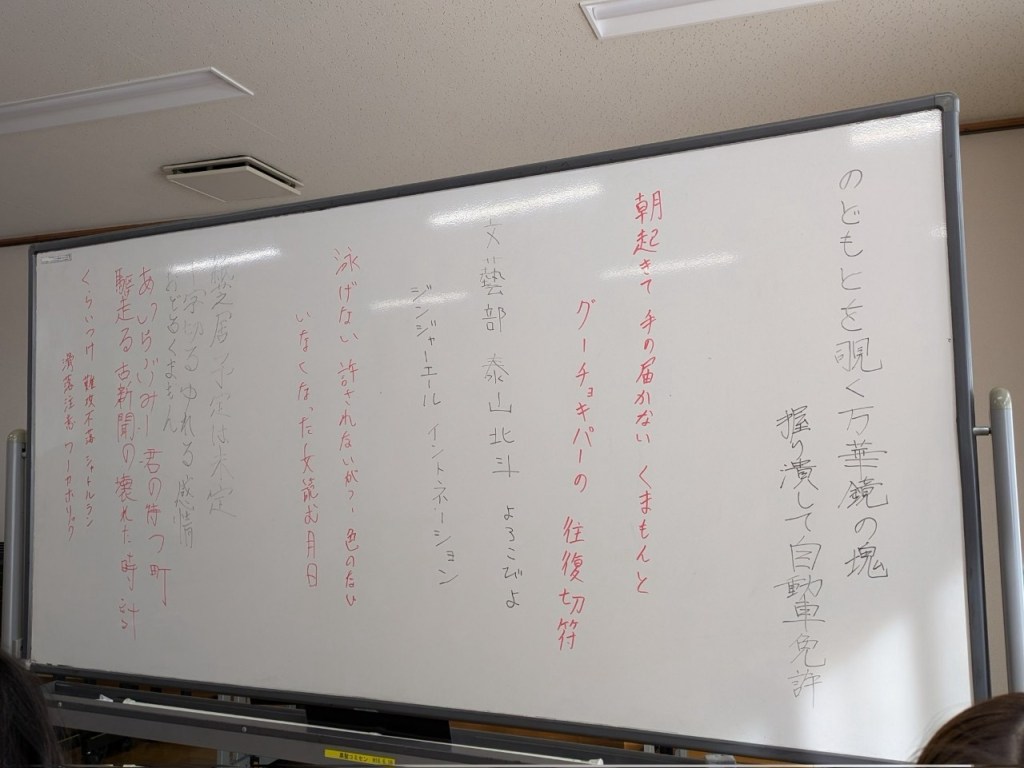 のどもとを覗く万華鏡の塊
握り潰して自動車免許
朝起きて手の届かない くまもんと
グーチョキパーの 往復切符
文藝部 泰山北斗 よろこびよ
ジンジャーエール イントネーション
泳げない 許されないが 色のない
いなくなった女 読む月日
予定は未定
十字切る ゆれる 感情
おどるくまもん
あいらぶゆみー 君の待つ町
駆走る古新聞の壊れた時計
くらいつけ 難攻不落 シャトルラン
滑落注意 ワーカホリック